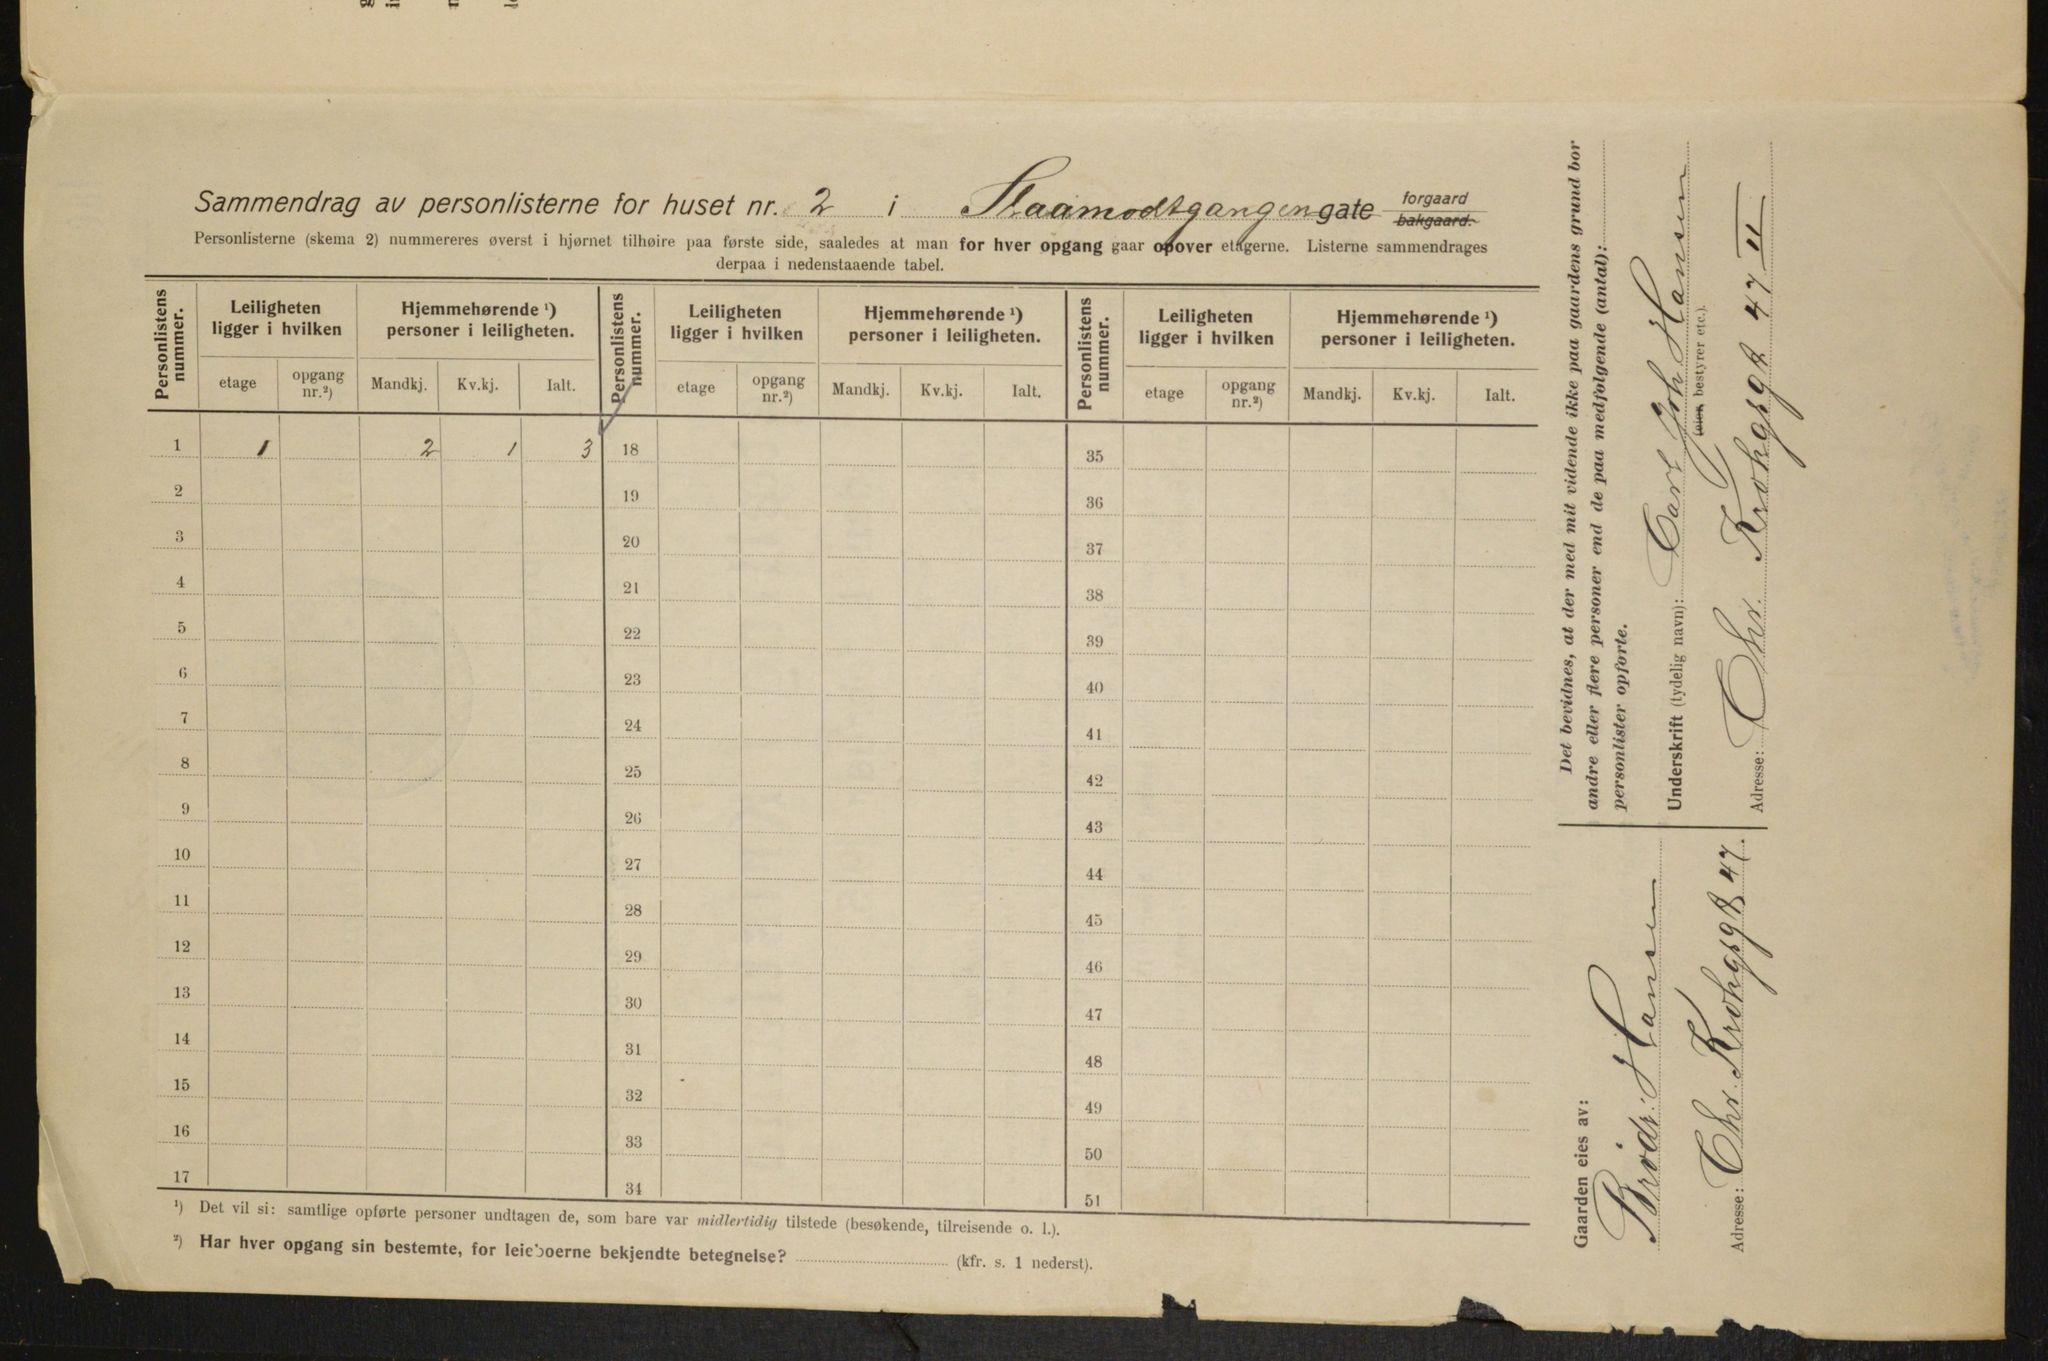 Sammendrag av personlisterne for huset nr. 2 i Slaamodtgangen gate forgaard bakgaard.
Personlisterne (skema 2) nummereres øverst i hjørnet tilhøire paa første side, saaledes at man for hver opgang gaar opover etagerne. Listerne sammendrages
derpaa i nedenstaaende tabel.
Personlistens nummer. Leiligheten ligger i hvilken Hjemmehørende ¹) personer i leiligheten. Personlistens nummer. Leiligheten ligger i hvilken Hjemmehørende ¹) personer i leiligheten. Personlistens nummer. Leiligheten ligger i hvilken Hjemmehørende ¹) personer i leiligheten.
etage opgang nr.²) Mandkj. Kv.kj. Ialt. etage opgang nr.²) Mandkj. Kv.kj. Ialt. etage opgang nr.²) Mandkj. Kv.kj. Ialt.
1 1 2 1 3 18 35
2 19 36
3 20 37
4 21 38
5 22 39
6 23 40
7 24 41
8 25 42
9 26 43
10 27 44
11 28 45
12 29 46
13 30 47
14 31 48
15 32 49
16 33 50
17 34 51
¹) Det vil si: samtlige opførte personer undtagen de, som bare var midlertidig tilstede (besøkende, tilreisende o. l.).
²) Har hver opgang sin bestemte, for leieboerne bekjendte betegnelse? (kfr. s. 1 nederst).
Det bevidnes, at der med mit vidende ikke paa gaardens grund bor
andre eller flere personer end de paa medfølgende (antal):
personlister opførte.
Underskrift (tydelig navn): Carl Joh Hansen
(eier, bestyrer etc.).
Adresse: Chr. Krohgsgt 47 II
Gaarden eies av:
Brødr. Hansen
Adresse: Chr. Krohgsgt 47.